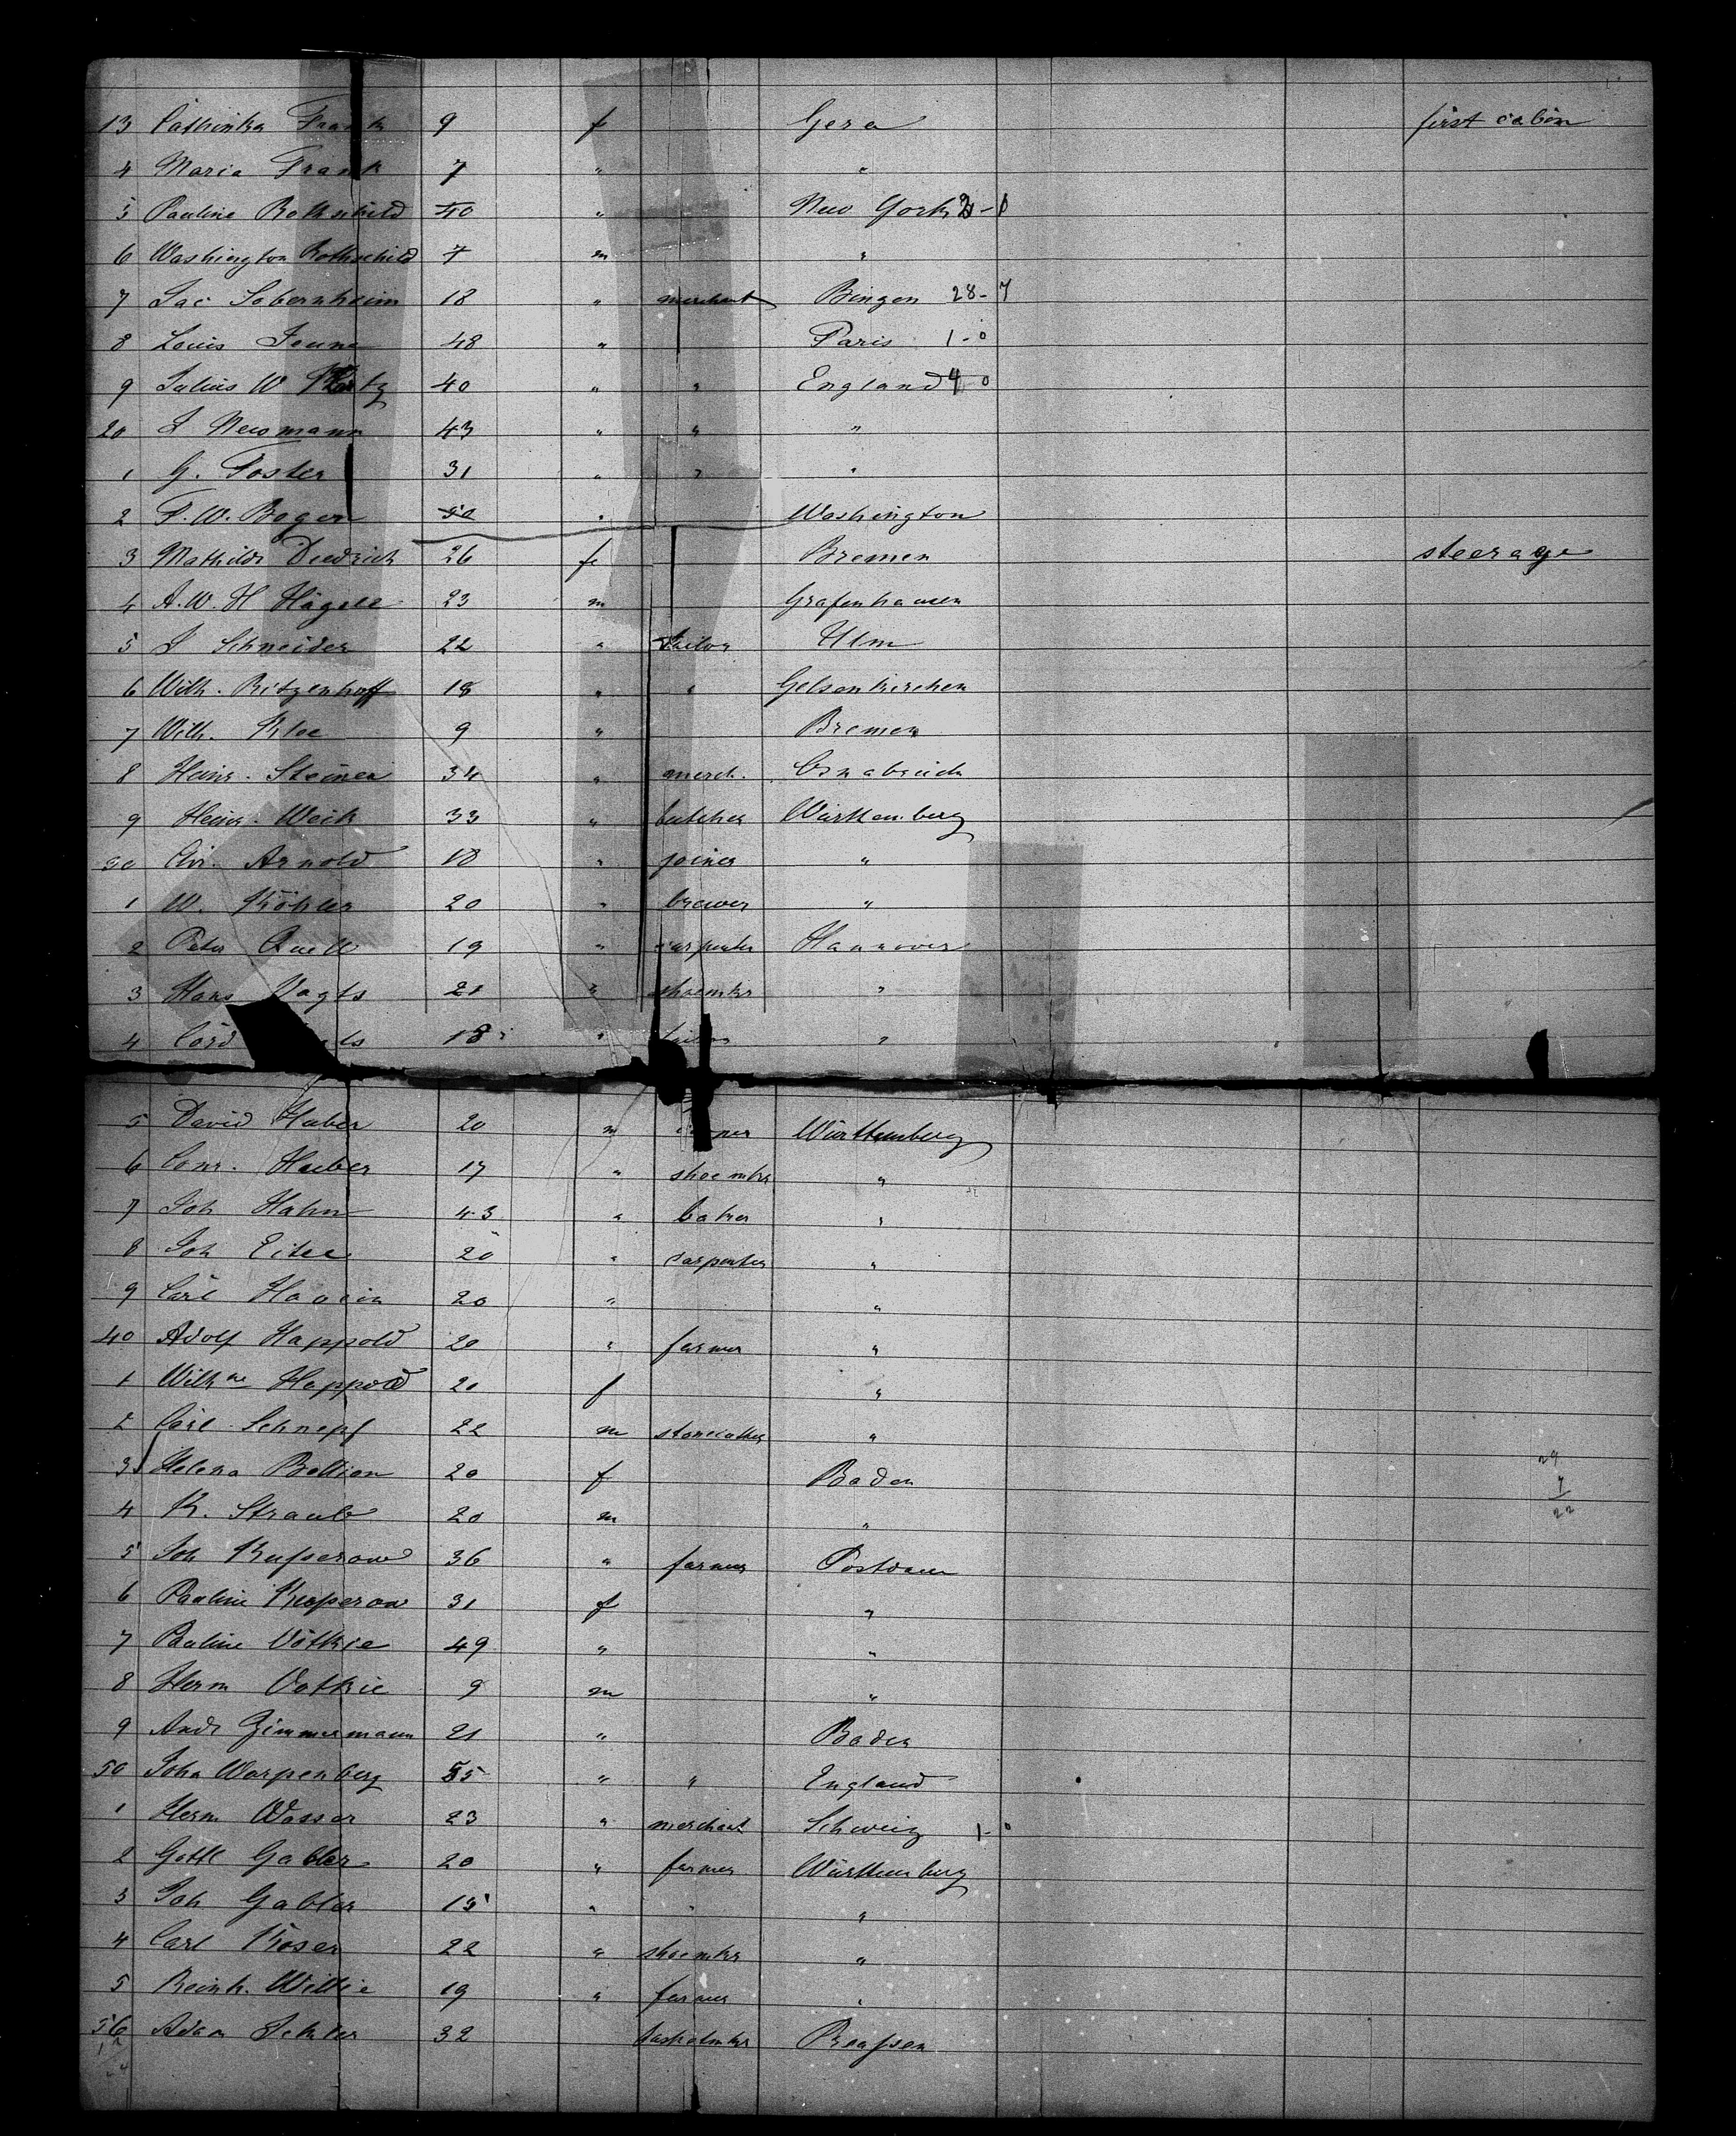 13 Cathinka Frank 9 f Gera first cabin
4 Maria Frank 7 " "
5 Pauline Rothschild 40 " New York 2-0
6 Washington Rothschild 7 m "
7 Jac. Sobernheim 18 " merchant Bingen 28-7
8 Louis 48 " Paris 1-0
9 Julius W 40 " " England 4 0
20 J Newmann 43 " " "
1 G. Foster 31 " " "
2 F. W. Bogen 50 " Washington
3 Mathilde Diedrich 26 f Bremen steerage
4 A. W. H Hägele 23 m Grafenhausen
5 J Schneider 22 " tailor Ulm
6 Wilh. Ritzenhoff 18 " " Gelsenkirchen
7 Wilh. Kloe 9 " Bremen
8 Heinr. Steinen 34 " merch. Osnabrück
9 Heinr. Weik 33 " butcher Württemberg
30 Chr. Arnold 18 " joiner "
1 W. Köhler 20 " brewer "
2 Peter Quell 19 " carpenter Hannover
3 Hans Vagts 21 " shoemkr "
4 Cord 18 " tailor "
5 David Huber 20 m Württemberg
6 Conr. Huber 17 " shoemkr "
7 Joh Hahn 43 " baker "
8 Joh Eitel 20 " carpenter "
9 Carl 20 " "
40 Adolf Happold 20 " farmer "
1 Wilhne Happold 20 f "
2 Carl Schnepf 22 m stonecutter "
3 Helena Bellion 20 f Baden 29
4 K. Straub 20 m " 7 22
5 Joh Kusserow 36 " farmer Postdam
6 Pauline Kusserow 31 f "
7 Pauline Vöthie 49 " "
8 Herm Vothie 9 m "
9 Andr Zimmermann 21 " Baden
50 John Warpenberg 35 " " England
1 Herm Wasser 23 " merchant Schweiz 1-0
2 Gottl Gabler 20 " farmer Württemberg
3 Joh Gabler 15 " " "
4 Carl Koser 22 " shoemkr "
5 Reinh. Willie 19 " farmer "
56 Adam 32 basketmkr Preussen